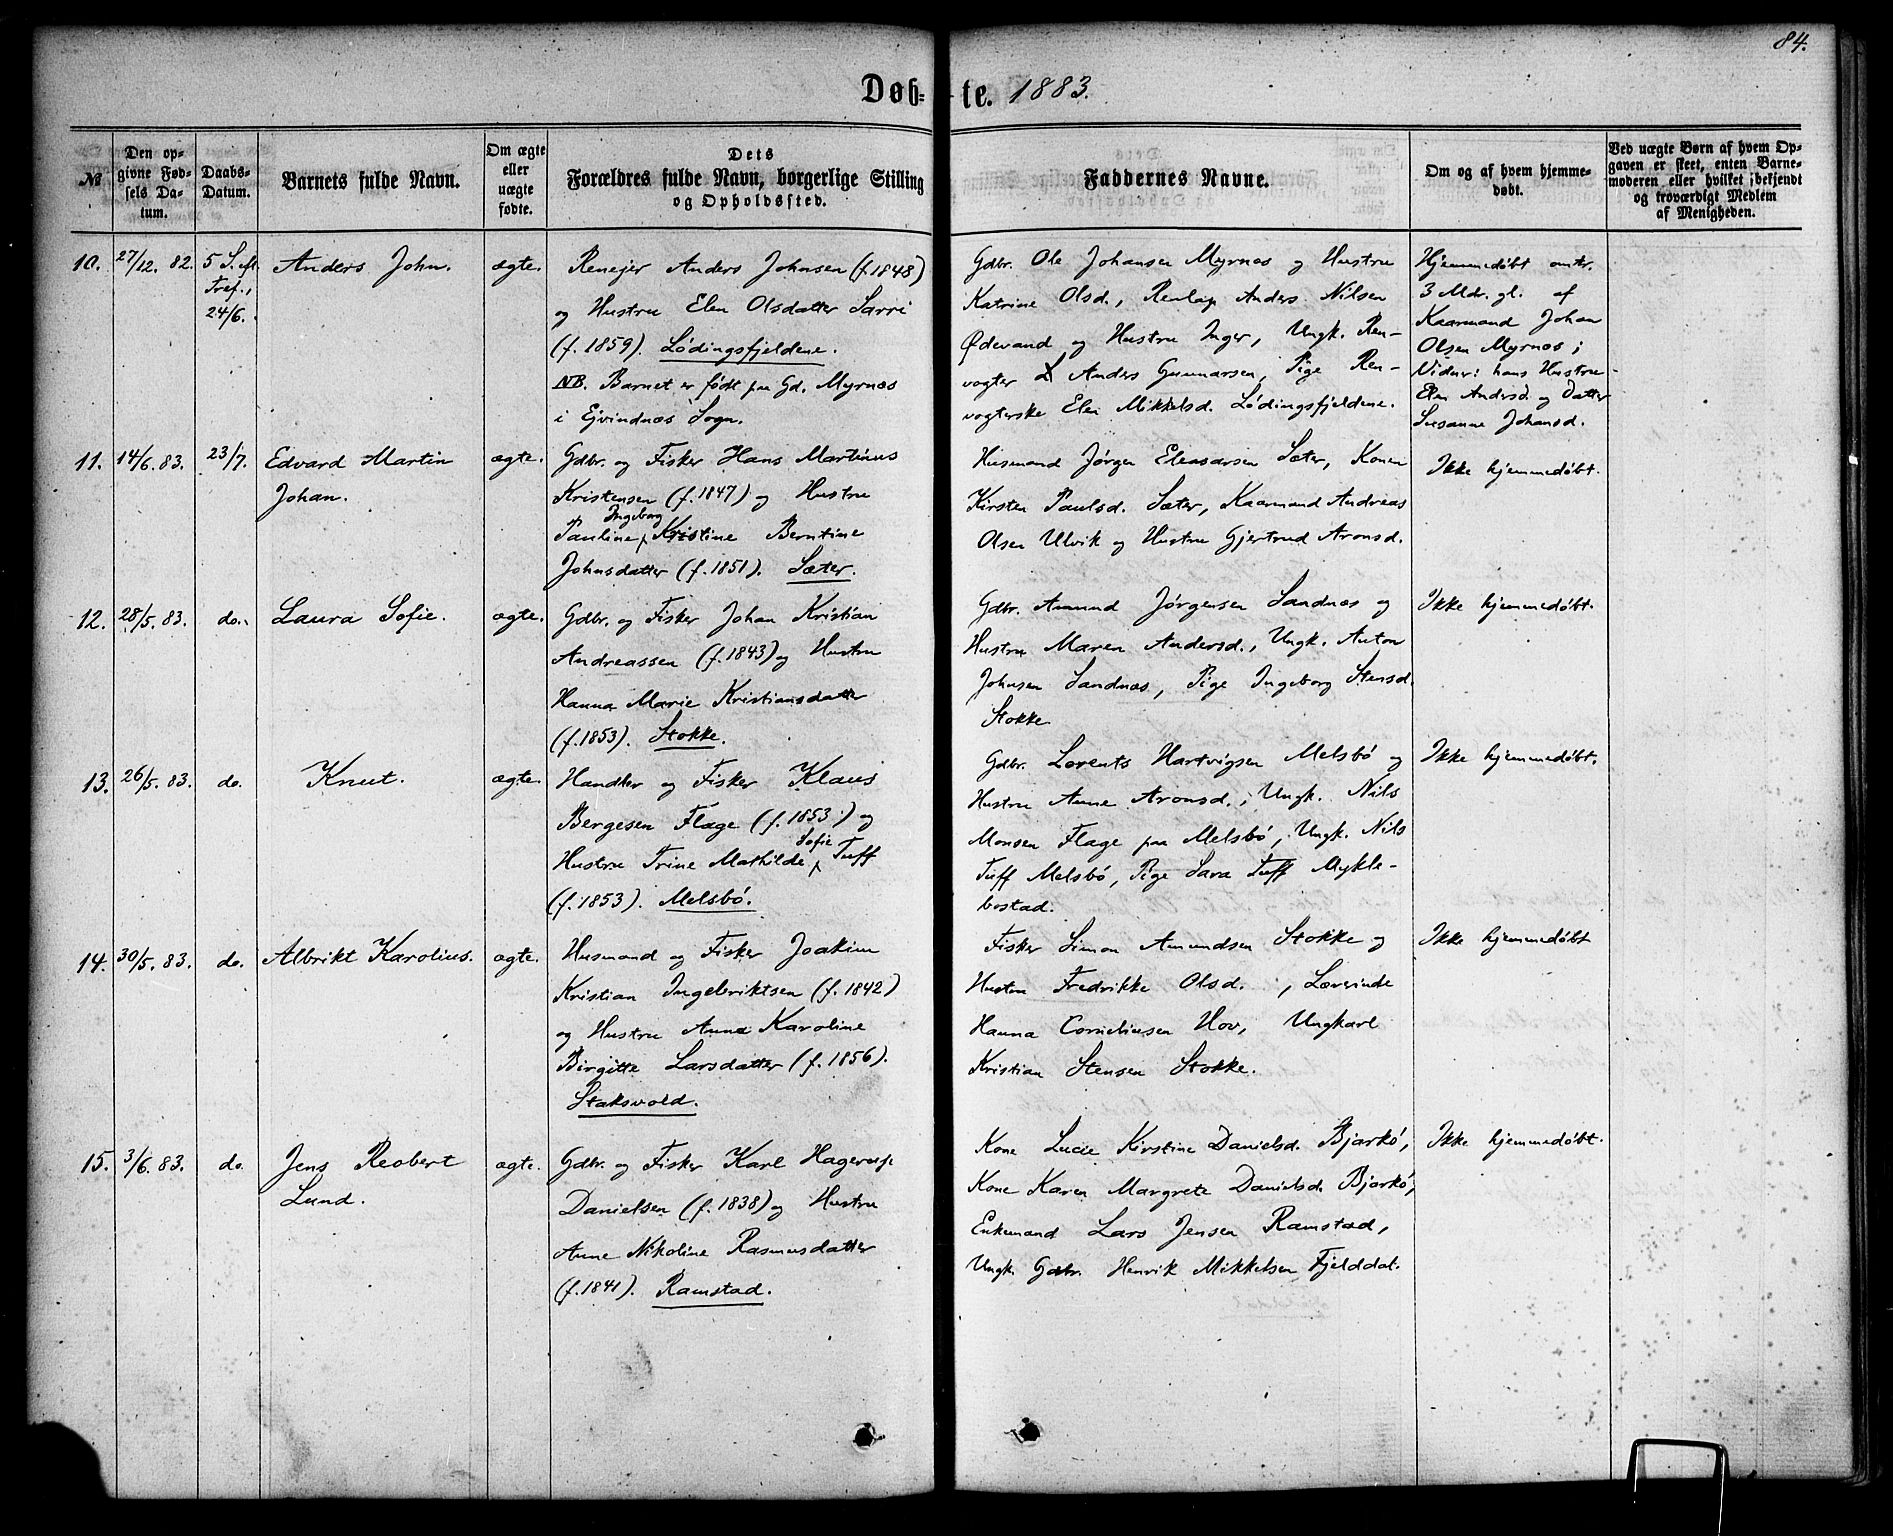 84.
Døb-te. 1883.
№
Den op-
givne Fød-
sels Da-
tum.
Daabs-
Datum.
Barnets fulde Navn.
Om ægte
eller
uægte
fødte.
Dets
Forældres fulde Navn, borgerlige Stilling
og Opholdssted.
Faddernes Navne.
Om og af hvem hjemme-
døbt.
Ved uægte Børn af hvem Op-
gaven er skeet, enten Barne-
moderen eller hvilket bekjendt
og troværdigt Medlem
af Menigheden.
10. 27/12. 82. 5 S. eft.
Tref.,
24/6.
Anders John.
ægte.
Renejer Anders Johnsen (f. 1848)
og Hustru Elen Olsdatter Sarri
(f. 1859). Lødingsfjeldene.
NB. Barnet er født paa Gd. Myrnæs
i Ejvindnæs Sogn.
Gdbr. Ole Johansen Myrnæs og Hustru
Katrine Olsd., Renlap Anders Nilsen
Ødevand og Hustru Inger, Ungk. Ren-
vogter Anders Gunnarsen, Pige Ren-
vogterske Elen Mikkelsd. Lødingsfjeldene.
Hjemmedøbt omtr.
3 Mdr. gl. af
Kaarmand Johan
Olsen Myrnæs;
Vidner: hans Hustru
Elen Andersd. og Datter
Susanne Johansd.
11. 14/6. 83. 23/7.
Edvard Martin
Johan.
ægte.
Gdbr. og Fisker Hans Martinus
Kristensen (f. 1847) og Hustru
Ingeborg
Pauline, Kristine Berntine
Johnsdatter (f. 1851). Sæter.
Husmand Jørgen Eleasarsen Sæter, Konen
Kirsten Paulsd. Sæter, Kaarmand Andreas
Olsen Ulvik og Hustru Gjertrud Aronsd.
Ikke hjemmedøbt.
12. 28/5. 83. do.
Laura Sofie.
ægte.
Gdbr. og Fisker Johan Kristian
Andreassen (f. 1843) og Hustru
Hanna Marie Kristiansdatter
(f. 1853). Stokke.
Gdbr. Amund Jørgensen Sandnæs og
Hustru Maren Andersd., Ungk. Anton
Johnsen Sandnæs, Pige Ingeborg Stensd.
Stokke
Ikke hjemmedøbt.
13. 26/5. 83. do.
Knut.
ægte.
Handler og Fisker Klaus
Bergesen Flage (f. 1853.) og
Sofie
Hustru Trine Mathilde, Tuff
(f. 1853). Melsbö.
Gdbr. Lorents Hartvigsen Melsbö og
Hustru Anne Aronsd., Ungk. Nils
Monsen Flage paa Melsbö, Ungk. Nils
Tuff Melsbö, Pige Sara Tuff Mykle-
bostad.
Ikke hjemmedøbt.
14. 30/5. 83. do.
Albrikt Karolius.
ægte.
Husmand og Fisker Joakim
Kristian Ingebriktsen (f. 1842)
og Hustru Anna Karoline
Birgitte Larsdatter (f. 1856).
Staksvold.
Fisker Simon Amundsen Stokke og
Hustru Fredrikke Olsd., Lærerinde
Hanna Corneliusen Hov, Ungkarl
Kristian Stensen Stokke.
Ikke hjemmedøbt
15. 3/6. 83. do.
Jens Reobert
Lund.
ægte.
Gdbr. og Fisker Karl Hagerup
Danielsen (f. 1838) og Hustru
Anne Nikoline Rasmusdatter
(f. 1841). Ramstad.
Kone Lucie Kirstine Danielsd. Bjarkö,
Kone Karen Margrete Danielsd. Bjarkö,
Enkemand Lars Jensen Ramstad,
Ungk. Gdbr. Henrik Mikkelsen Fjelddal.
Ikke hjemmedøbt.